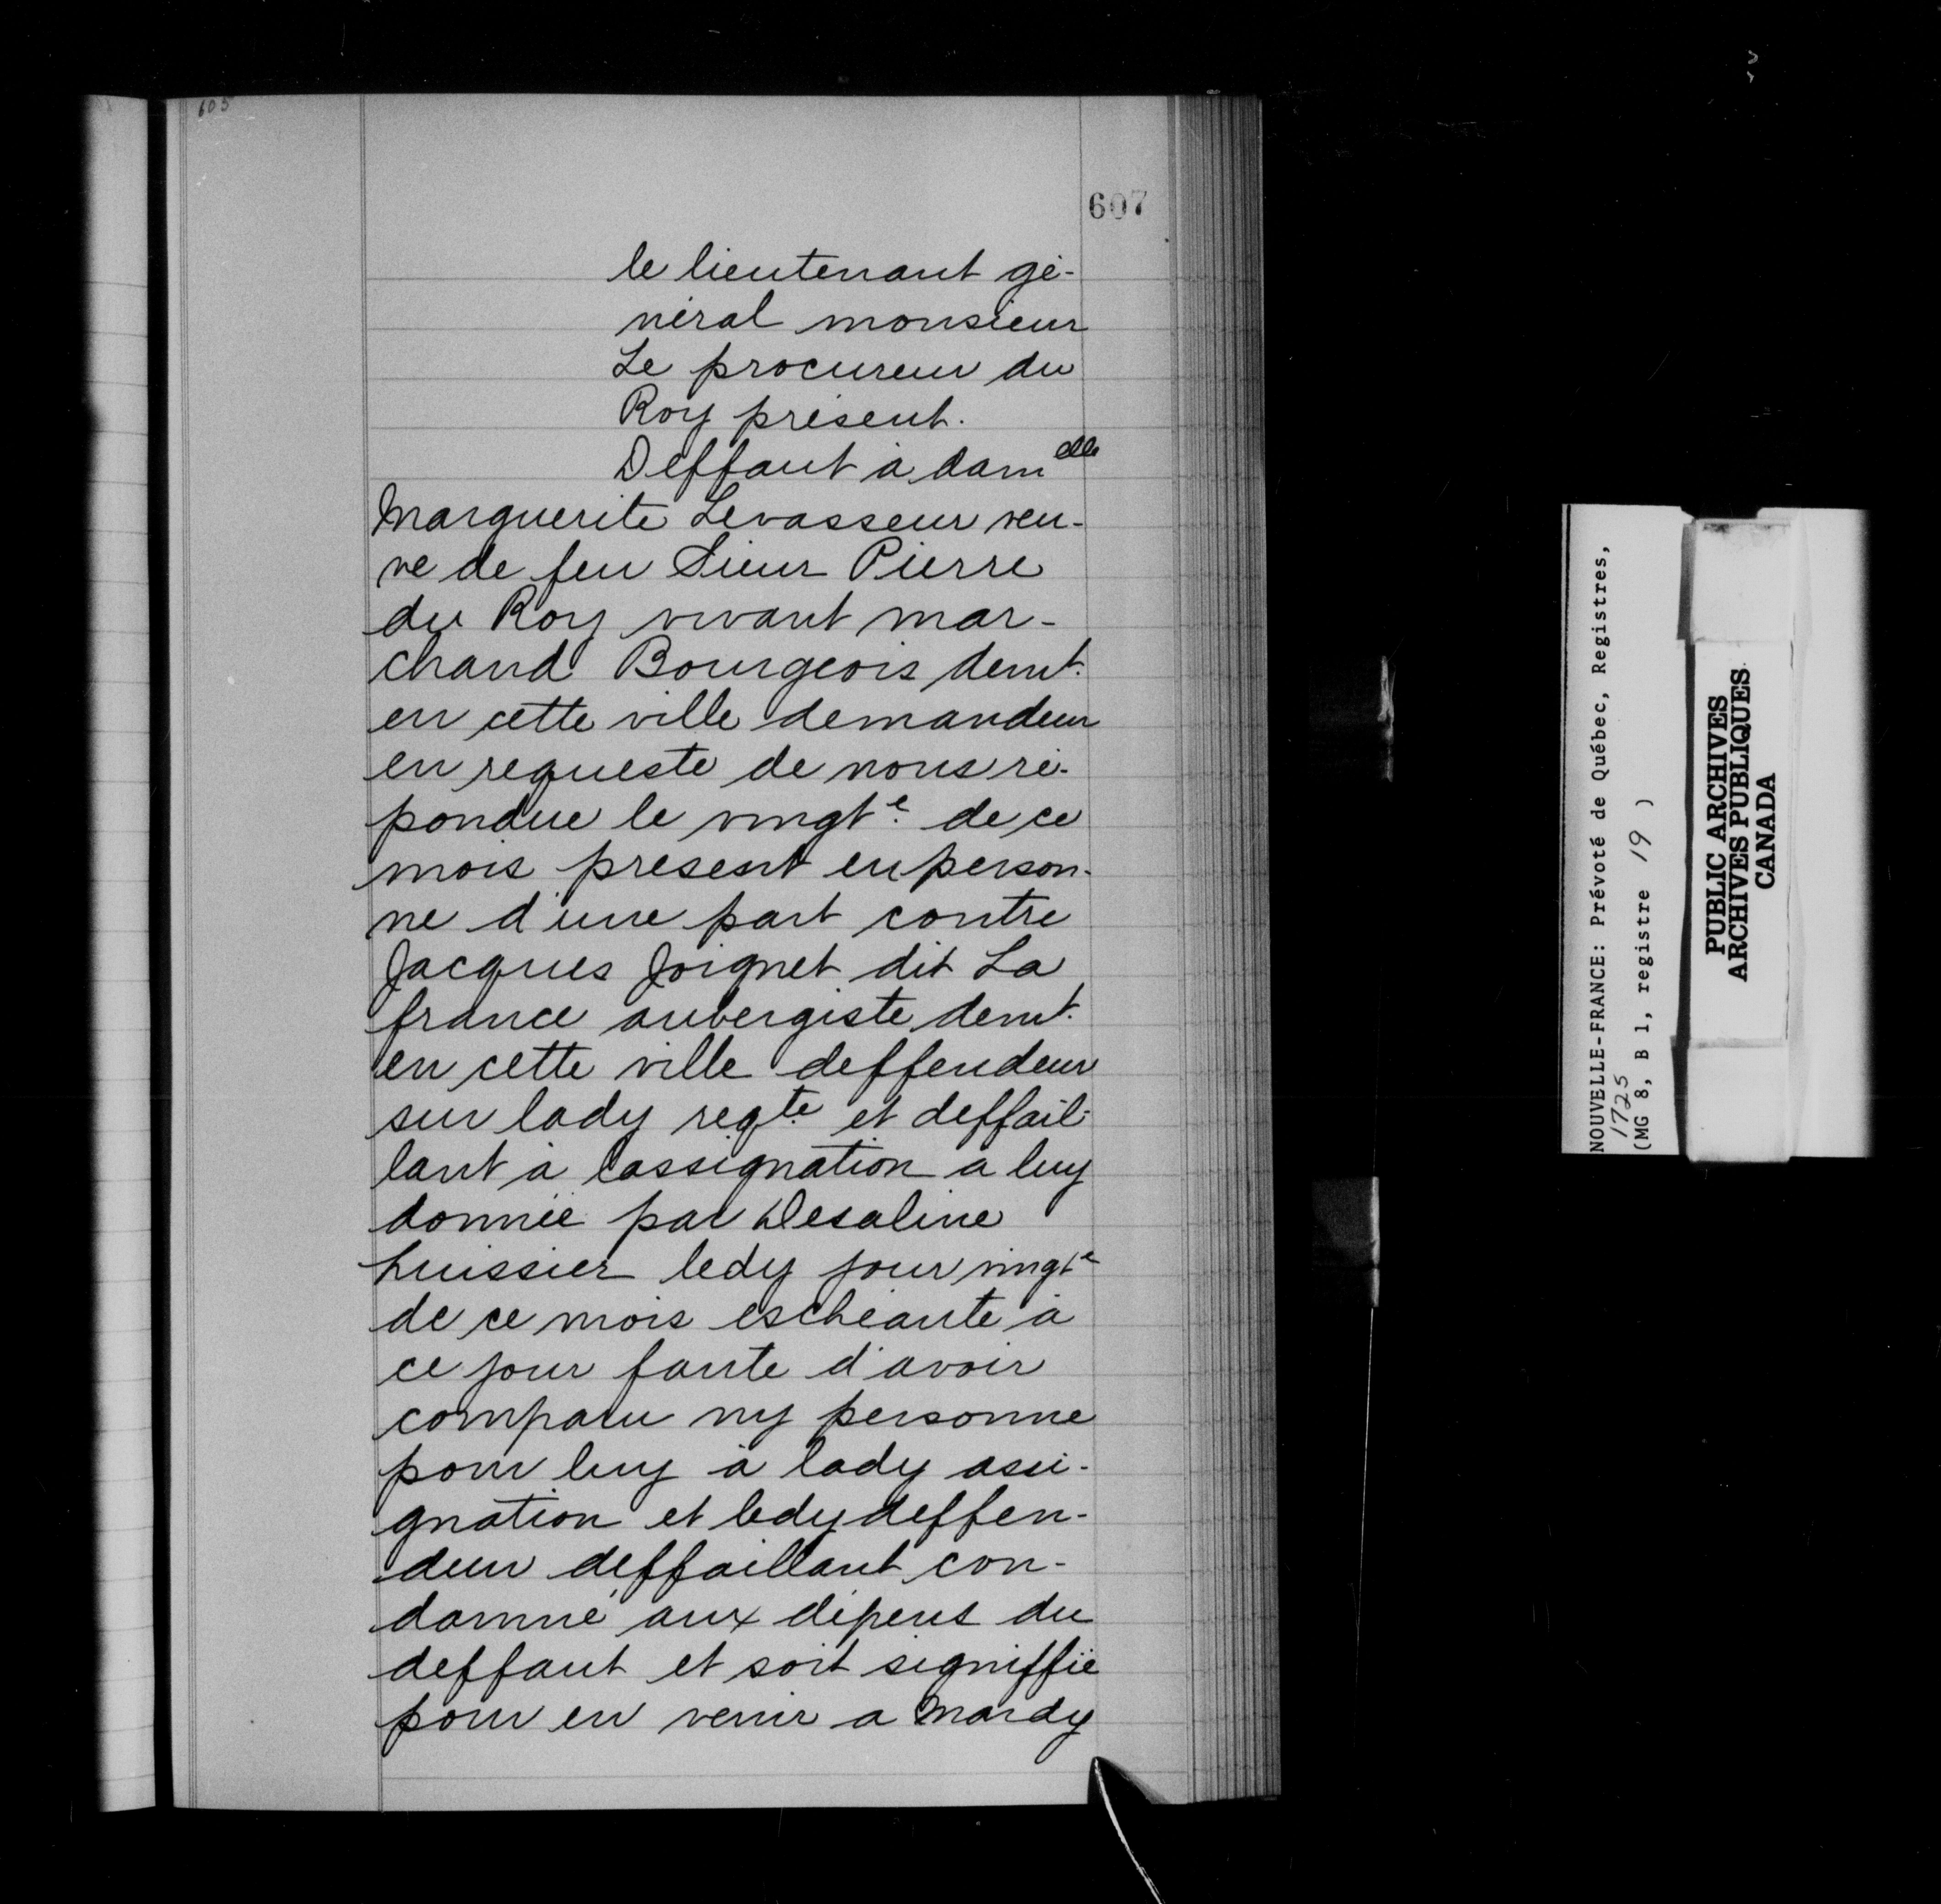 603
607
le lieutenant gé-
néral monsieur
Le procureur du
Roy présent.
Deffaut à dam elle
Marguerite Levasseur veu-
ve de feu Sieur Pierre
du Roy vivant mar-
chand Bourgeois demt.
en cette ville demandeur
en requeste de nous ré-
pondue le vingt e de ce
mois present en person-
ne d'une part contre
Jacques Joignet dit La
france aubergiste demt.
en cette ville deffendeur
sur lady reqte et deffail-
lant à l'assignation a luy
donnée par Desaline
huissier ledy jour vingt e
de ce mois eschéante à
ce jour faute d'avoir
comparu ny personne
pour luy à lady assi-
gnation et ledy deffen-
deur deffaillant con-
damné aux dépens du
deffaut et soit signiffié
pour en venir a Mardy
NOUVELLE-FRANCE: Prévoté de Québec, Registres,
1725
(MG 8, B 1, registre 19 )
PUBLIC ARCHIVES
ARCHIVES PUBLIQUES
CANADA